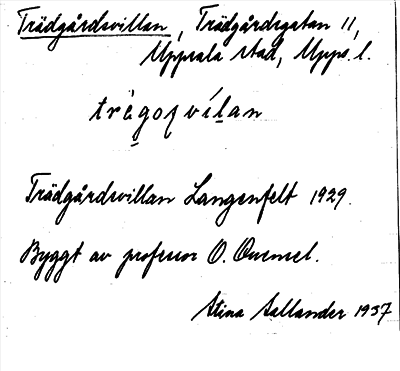 Trädgårdsvillan, Trädgårdsgatan 11,
Uppsala stad, Upps. l.
Trädgårdsvillan Langenfelt 1929.
Byggt av professor O. Quensel.
Stina 1937